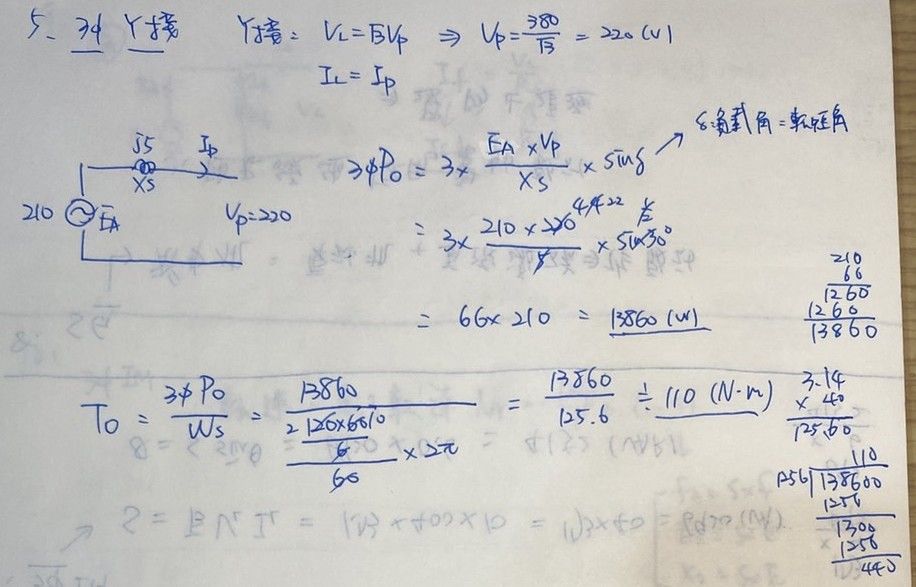 5. 3ϕ Y接 Y接: VL=√3VP ⇒ VP=380/√3=220(V)
IL=IP
δ:負載角=轉矩角
j5 IP
XS
3ϕPo = 3× EA×VP/XS × sinδ
210 EA VP=220
= 3× 210×220/5 × sin30° 44 22 1/2
= 66×210 = 13860(W)
210
66
1260
1260
13860
To = 3ϕPo/WS = 13860/(120×60/6/60 ×2π) = 13860/125.6 ≑ 110 (N·m)
2 10
3.14
× 40
125.60
110
1256 138600
1256
1300
1256
440